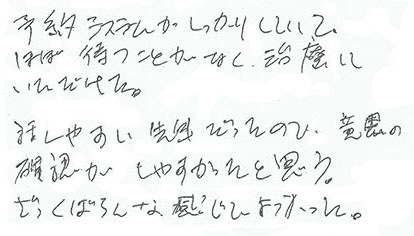 予約システムがしっかりしていて、
ほぼ待つことがなく、治療に
いただけた。
話しやすい先生だったので、意思の
確認がしやすかったと思う。
ざっくばらんな感じでよかった。